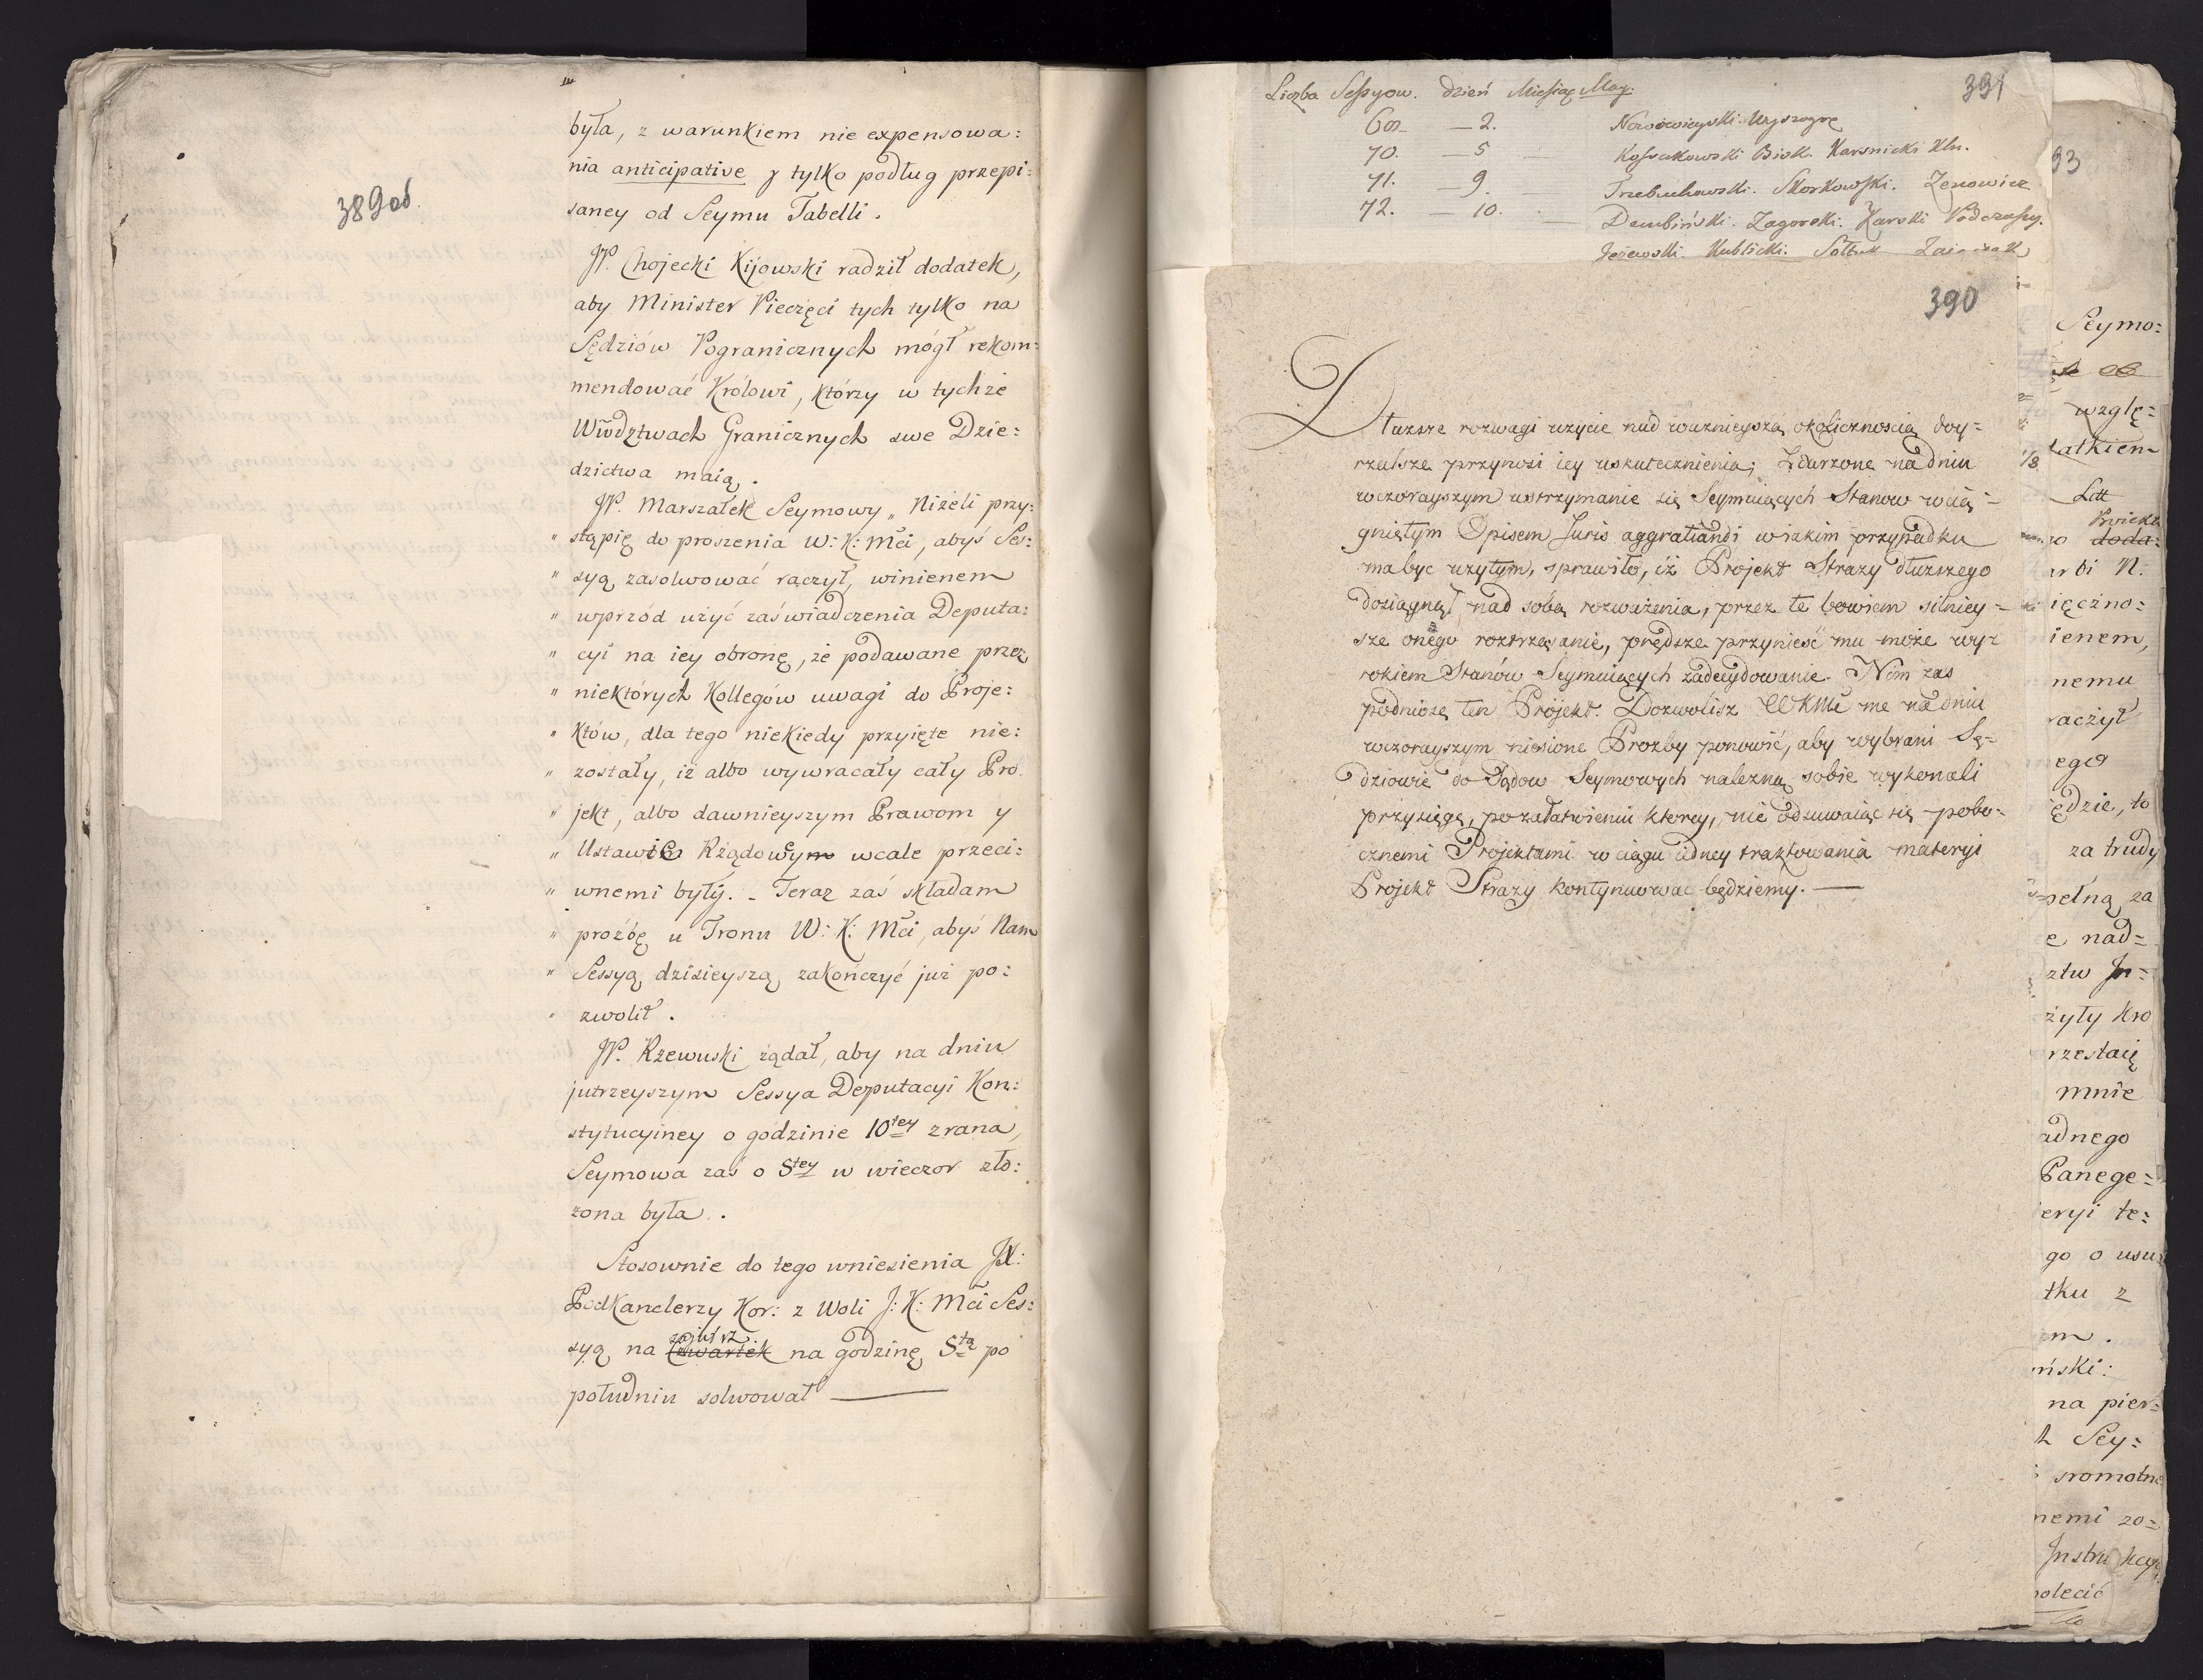 389 об.
była, z warunkiem nie expensowa:
nia anticipative y tylko podług przepi:
saney od Seymu Tabelli.
JP. Chojecki Kijowski radził dodatek,
aby Minister Pieczęci tych tylko na
Sędziów Pogranicznych mógł rekom:
mendować Królowi, którzy w tychże
Wwdztwach Granicznych swe Dzie:
dzictwa maią.
JP. Marszałek Seymowy „ Niżeli przy:
" stąpię do proszenia W: K: Mci, abyś Ses:
" syą zasolwować raczył, winienem
" wprzód użyć zaświadczenia Deputa:
" cyi na iey obronę, że podawane przez
" niektórych Kollegów uwagi do Proje:
" któw, dla tego niekiedy przyięte nie:
" zostały, iż albo wywracały cały Pro
" jekt, albo dawnieyszym Prawom y
" Ustawie Rządowey wcale przeci:
" wnemi były. - Teraz zaś składam
" prożbę u Tronu W: K: Mci, abyś Nam
" Sessyą dzisieyszą zakończyć już po:
" zwolił.
JP. Rzewuski żądał, aby na dniu
jutrzeyszym Sessya Deputacyi Kon:
stytucyiney o godzinie 10tey zrana,
Seymowa zaś o 5tey w wieczor zło:
żona była.
Stosownie do tego wniesienia JX:
Podkanclerzy Kor: z Woli J: K: Mci Ses:
zajutrz
syą na Czwartek na godzinę 5tą po
południu solwował —
391
Liczba Sessyow. dzień Miesiąc May:
69 — 2. Nowowieyski Wyszogr
70. — 5 — Kossakowski Bisk. Karsnicki Kln.
71. — 9. Trzebuchowski. Skorkowski. Zenowicz
72. — 10. — Dembiński. Zagorski. Karski Podczaszy.
Jezewski. Kublicki. Sołtyk Zaiączek
390
Dłuzsze rozwagi uzycie nad waznieyszą okolicznoscią doy=
rzalsze przynosi iey uskutecznienia; Zdarzone na dniu
wczorayszym wstrzymanie się Seymuiących Stanow w cią=
gniętym Opisem Juris aggratiandi w iakim przypadku
ma byc uzytym, sprawiło, iż Projekt Strazy dłuzszego
dosiągnął nad sobą rozważenia, przez te bowiem silniey=
sze onego roztrząsanie, prędsze przynieść mu może wy=
rokiem Stanów Seymuiących zadecydowanie. Nim zas
podniosę ten Projekt. Dozwolisz WKMć me na dniu
wczorayszym niesione Prozby ponowić, aby wybrani Sę=
dziowie do Sądow Seymowych nalezną sobie wykonali
przysięgę, po załatwieniu ktorey, nie odsuwaiąc się pobo=
cznemi Projektami w ciągu iedney traktowania materyi
Projekt Strazy kontynuowac będziemy. —
93
Seymo:
wzglę:
datkiem
Litt
doda:
rbi N:
ięczno:
ienem,
nemu
raczył
ego
ędzie, to
za trudy
pełną za
e nad=
ztw Jn=
żyły Kro
rzestaię
mnie
adnego
Panege=
eryi te:
go o usu
tku z
m.
ński:
na pier=
Sey:
sromotne
nemi zo=
Jnstrukcy
polecić